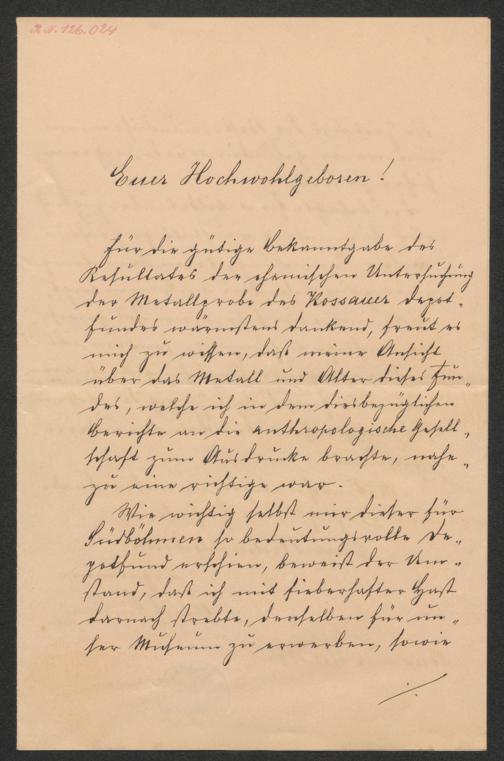 R.N. 126.024
Euer Hochwohlgeboren!
Für die gütige Bekanntgabe des
Resultates der chemischen Untersuchung
der Metallprobe des Kossauer Depot-
fundes wärmstens dankend, freut es
mich zu wissen, daß meine Ansicht
über das Metall und Alter dieses Fun-
des, welche ich in dem diesbezüglichen
Berichte an die anthropologische Gesell-
schaft zum Ausdrucke brachte, nahe-
zu eine richtige war.
Wie wichtig selbst mir dieser für
Südböhmen so bedeutungsvolle De-
potfund erschien, beweist der Um-
stand, daß ich mit fieberhafter Hast
darnach strebte, denselben für un-
ser Museum zu erwerben, sowie
./.